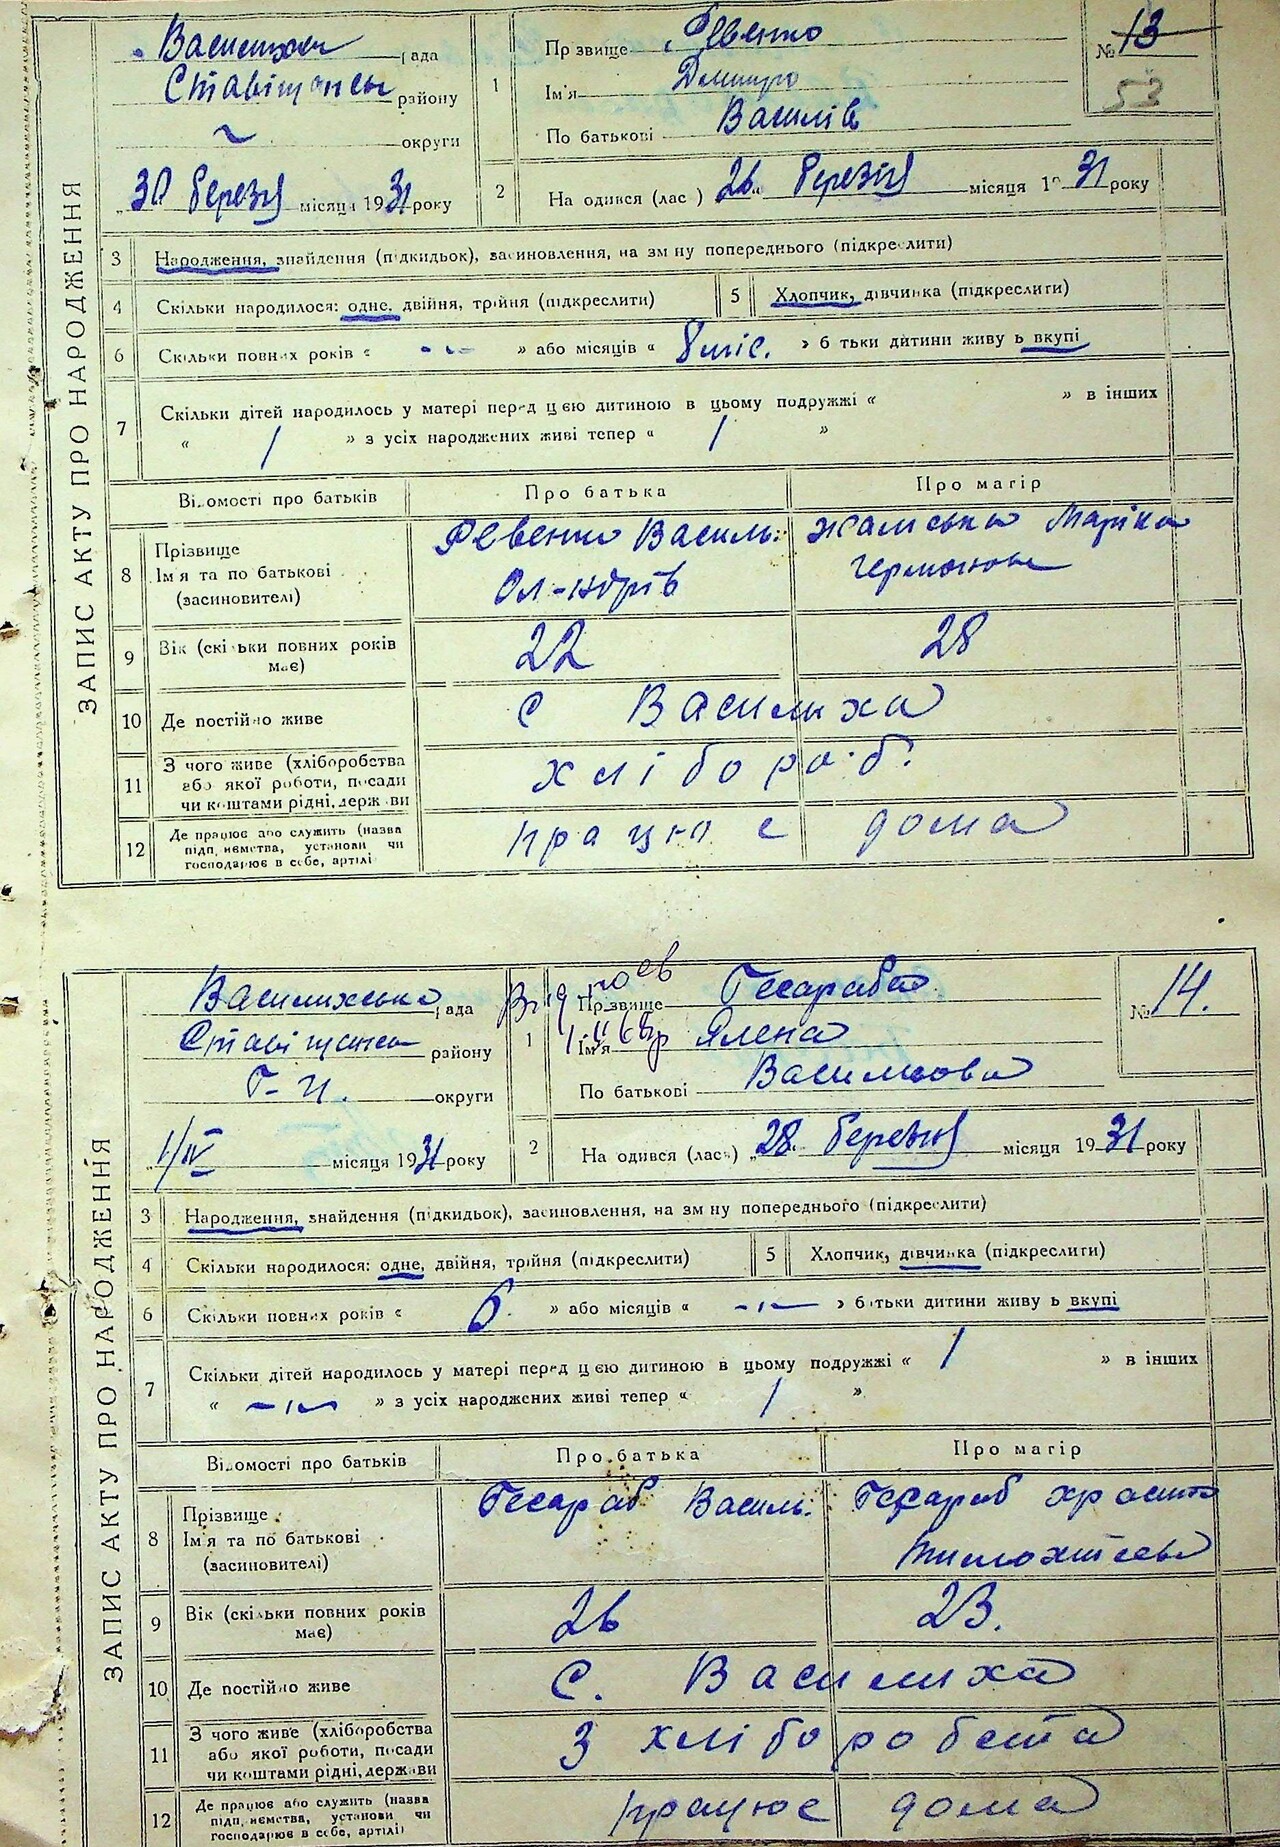 ЗАПИС АКТУ ПРО НАРОДЖЕННЯ
рада
району
округи
30 березня місяця 1931 року
№ 13
53
1 Прізвище Ревенко
Ім'я Дмитро
По батькові Василів
2 Народився (лась) 26 березня місяця 1931 року
3 Народження, знайдення (підкидьок), засиновлення, на зміну попереднього (підкреслити)
4 Скільки народилося: одне, двійня, трійня (підкреслити)
5 Хлопчик, дівчинка (підкреслити)
6 Скільки повних років « -"- » або місяців « 8 міс. » батьки дитини живуть вкупі
7 Скільки дітей народилось у матері перед цією дитиною в цьому подружжі « » в інших
« 1 » з усіх народжених живі тепер « 1 »
Відомості про батьків Про батька Про матір
8 Прізвище
Ім'я та по батькові
(засиновителі)
Ревенко Василь
Ол-ндрів
9 Вік (скільки повних років має) 22 28
10 Де постійно живе с Василиха
11 З чого живе (хліборобства
або якої роботи, посади
чи коштами рідні, держави
хлібороб.
12 Де працює або служить (назва
підприємства, установи чи
господарює в себе, артілі)
працює дома
ЗАПИС АКТУ ПРО НАРОДЖЕННЯ
рада
району
округи
1/IV місяця 1931 року
№ 14.
1 Прізвище
Ім'я
По батькові
2 Народився (лась) 28 березня місяця 1931 року
3 Народження, знайдення (підкидьок), засиновлення, на зміну попереднього (підкреслити)
4 Скільки народилося: одне, двійня, трійня (підкреслити)
5 Хлопчик, дівчинка (підкреслити)
6 Скільки повних років « 6. » або місяців « -"- » батьки дитини живуть вкупі
7 Скільки дітей народилось у матері перед цією дитиною в цьому подружжі « 1 » в інших
« -"- » з усіх народжених живі тепер « 1 »
Відомості про батьків Про батька Про матір
8 Прізвище
Ім'я та по батькові
(засиновителі)
Василь
9 Вік (скільки повних років має) 26 23.
10 Де постійно живе С. Василиха
11 З чого живе (хліборобства
або якої роботи, посади
чи коштами рідні, держави
З хліборобства
12 Де працює або служить (назва
підприємства, установи чи
господарює в себе, артілі)
працює дома